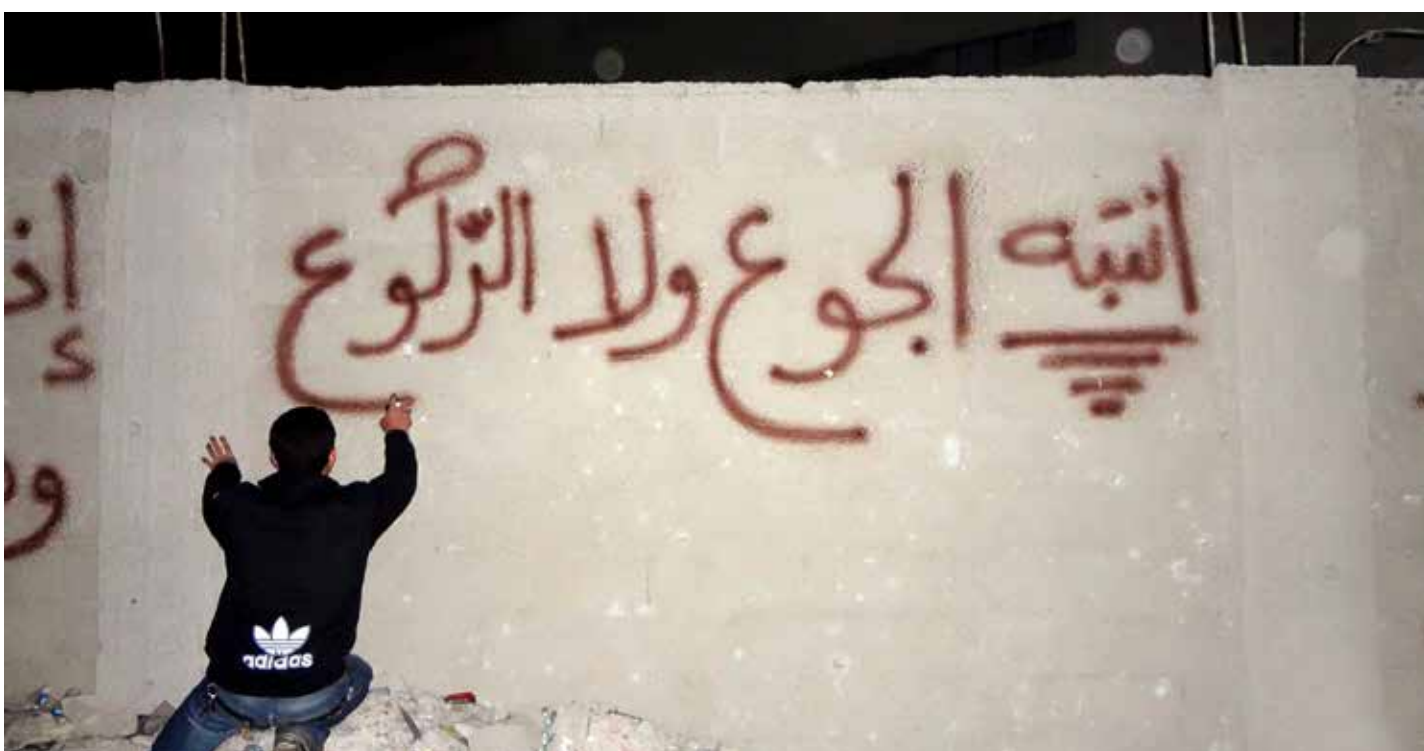 انتبه الجوع ولا الرّكوع
adidas